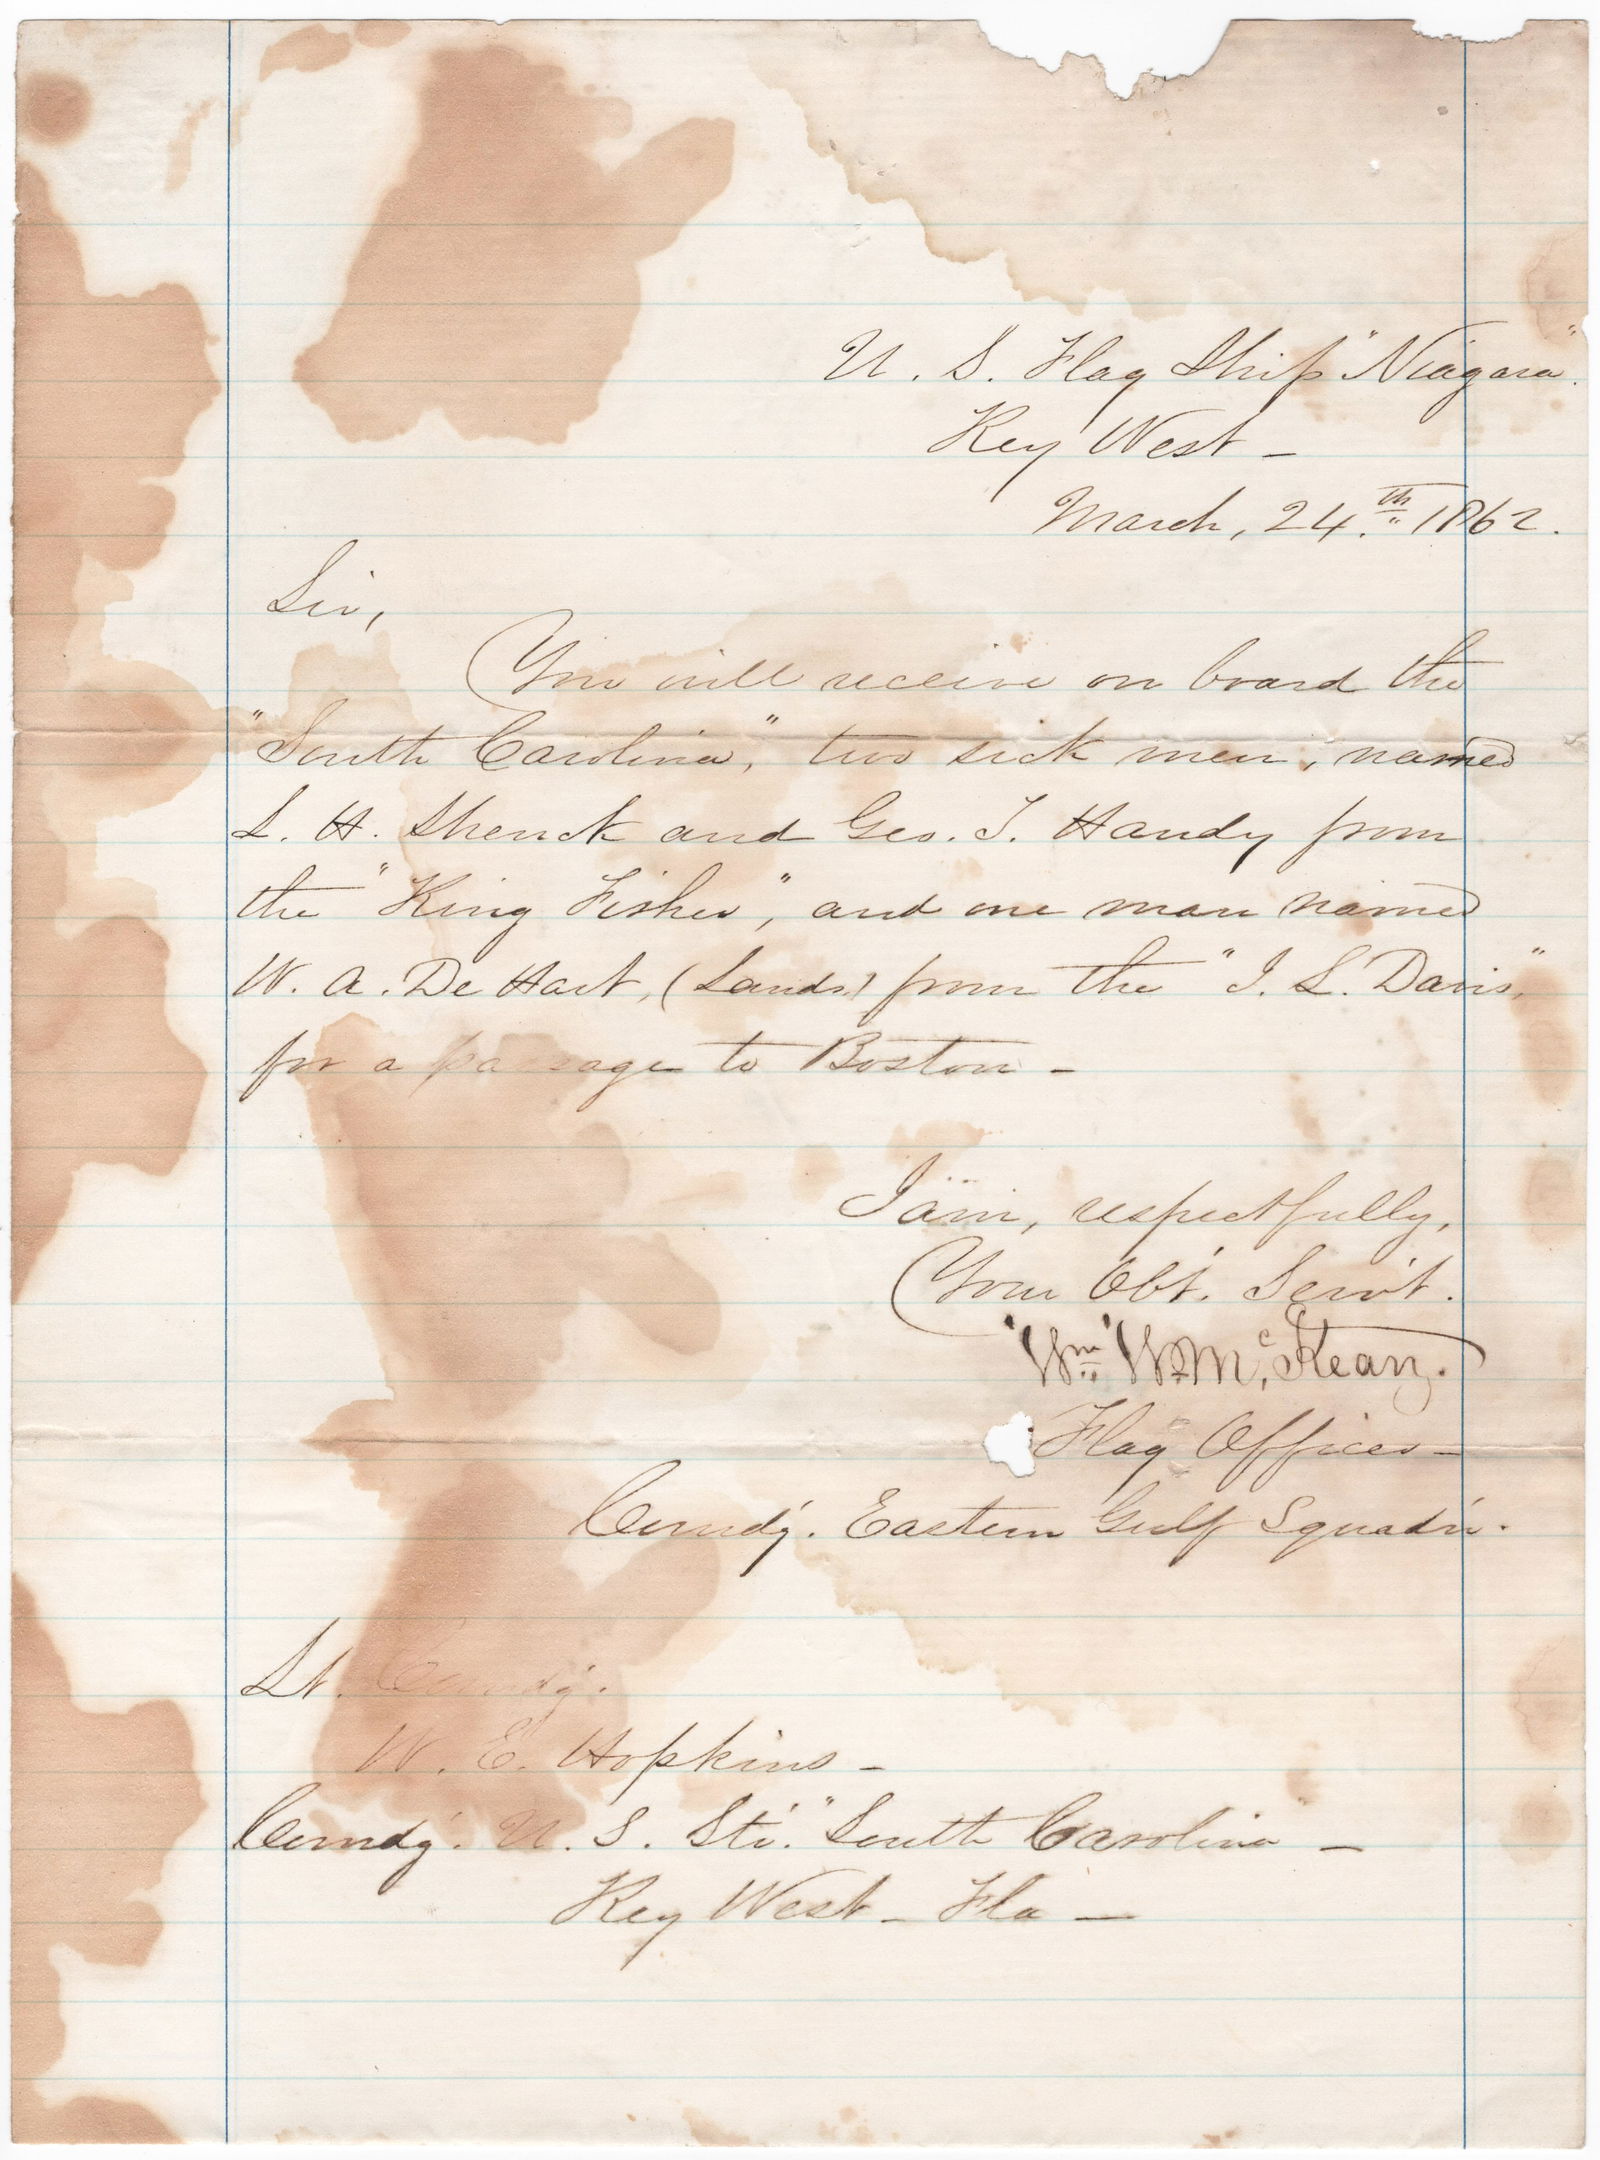 U. S. Flag Ship "Niagara".
Key West –
March, 24.th 1862.
Sir,
You will receive on board the
"South Carolina," two sick men, named
L. H. Shenck and Geo. T. Handy from
the "King Fisher", and one man named
W. A. De Hart, (Lands.) from the "J. L. Davis,"
for a passage to Boston –
I am, respectfully,
Your Obt. Serv't.
Wm. W. McKean.
Flag Officer –
Comdg. Eastern Gulf Squadn.
Lt. Comdg.
W. E. Hopkins –
Comdg. U. S. Str. "South Carolina" –
Key West – Fla –